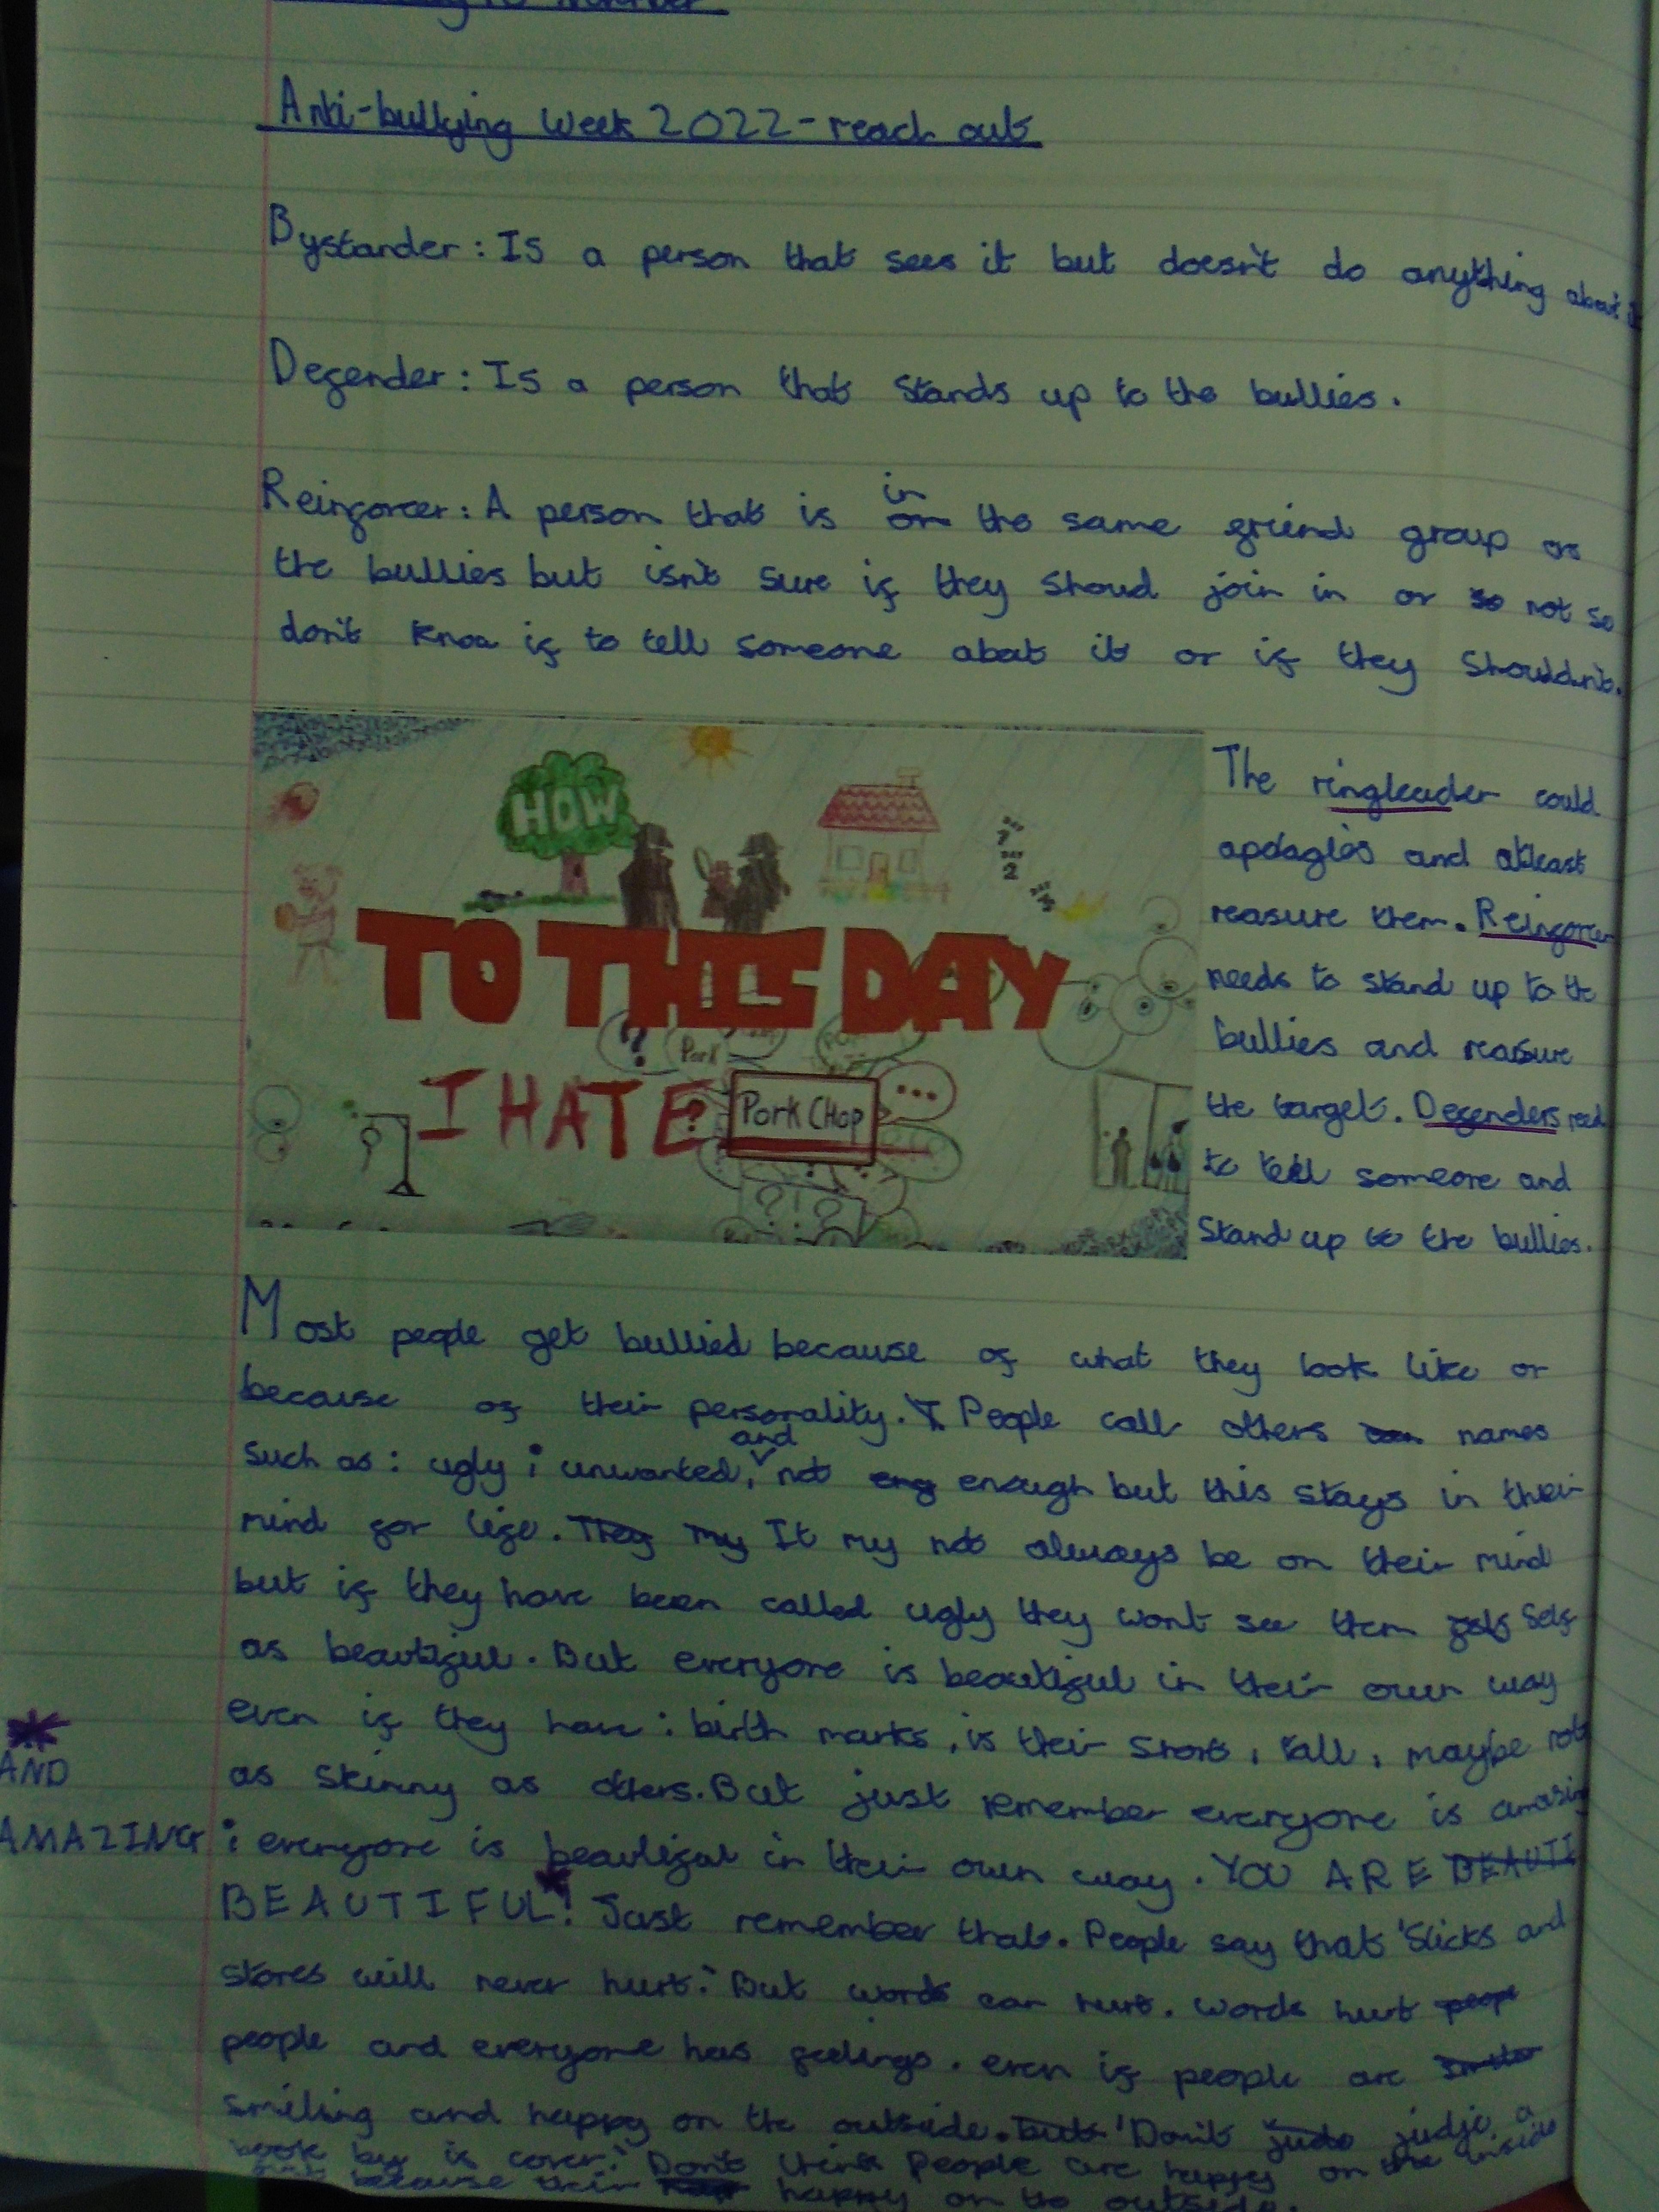 Anti-bullying Week 2022 - reach out
Bystander: Is a person that sees it but doesn't do anything about it
Defender: Is a person that stands up to the bullies.
in
Reinforcer: A person that is on the same griend group as
the bullies but isn't sure if they shoud join in or so not so
don't know if to tell someone abat it or if they shouldn't.
HOW
TO THIS DAY
Pork
I HATE
Pork Chop
The ringleader could
apolagies and atleast
reasure them. Reinforcer
needs to stand up to the
bullies and reasure
the target. Defenders need
to tell someone and
stand up to the bullies.
Most people get bullied because of what they look like or
because of their personality. I People call others names
and
such as: ugly, unwanted, not eng enough but this stays in their
mind for life. They my It my not always be on their mind
but if they have been called ugly they wont see them self
as beautiful. But everyone is beautiful in their own way
even if they have: birth marks, is their short, tall, maybe not
as skinny as others. But just remember everyone is amasing
AND
AMAZING
; everyone is beautiful in their own way. YOU ARE BEAUTI
BEAUTIFUL! Just remember that. People say that 'Sticks and
stones will never hurt.' But words can hurt. words hurt peope
people and everyone has feelings. even if people are
smiling and happy on the outside. but 'Don't jude judje a
book by is cover.' Don't think People are happy on the inside
just because their happy on the outside.